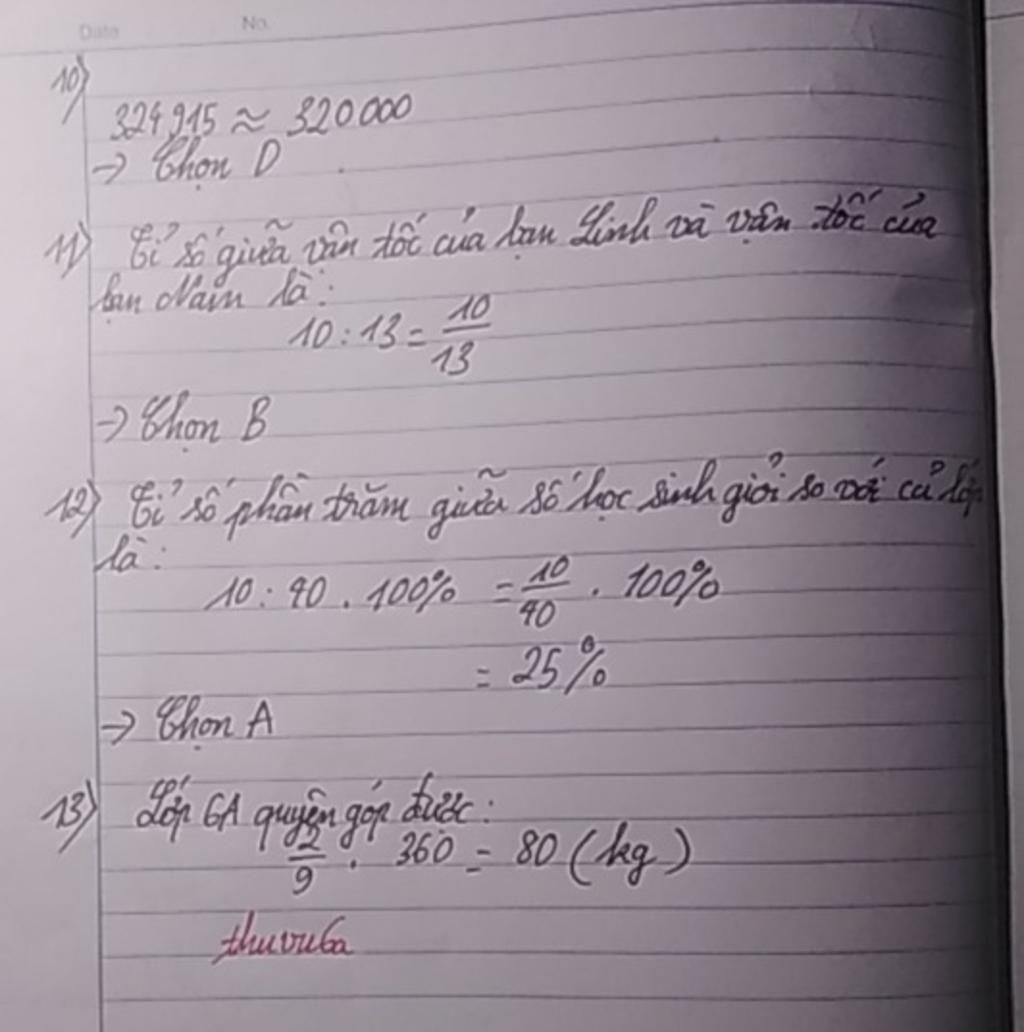 Date No.
10)
324 915 ≈ 320 000
→ Chọn D
11) Tỉ số giữa vận tốc của bạn Linh và vận tốc của
bạn Nam là:
10 : 13 = 10/13
→ Chọn B
12) Tỉ số phần trăm giữa số học sinh giỏi so với cả lớp
là:
10 : 40 . 100% = 10/40 . 100%
= 25%
→ Chọn A
13) Lớp 6A quyên góp được:
2/9 . 360 = 80 (kg)
thuvu6a